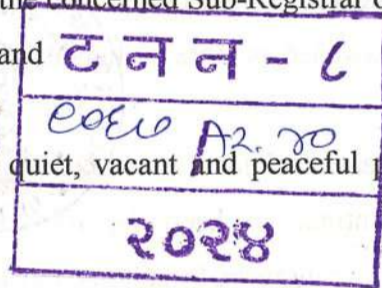 the concerned Sub-Registrar
and ट न न - ८
quiet, vacant and peaceful
२०२४